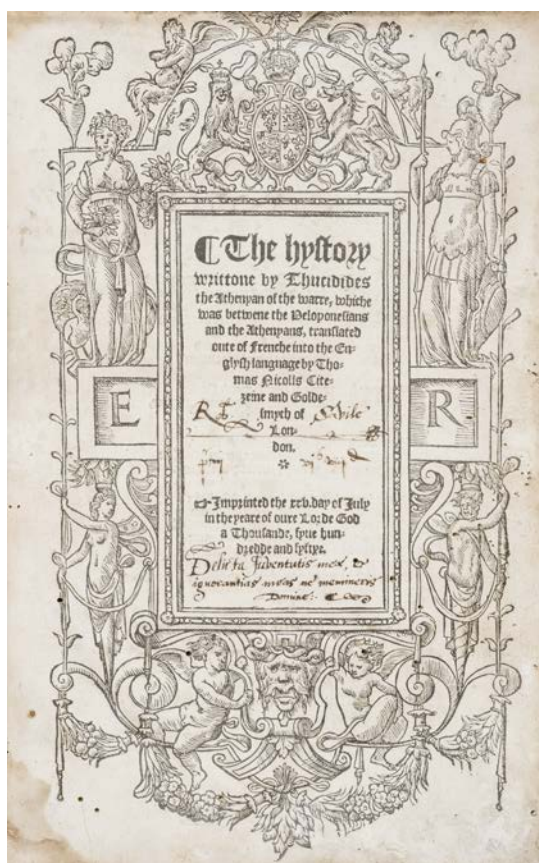 ¶ The hystory
writtone by Thucidides
the Athenyan of the warre, whiche
was betwene the Peloponesians
and the Athenyans, translated
oute of Frenche into the En-
glysh language by Tho-
mas Nicolls Cite-
zeine and Golde-
smyth of
Lon-
don.
E R
☞ Imprinted the xxv. day of July
in the yeare of oure Lorde God
a Thousande, fyue hun-
dredde and fyftye.
Delicta Juventutis meæ, &
ignorantias meas ne memineris
Domine: